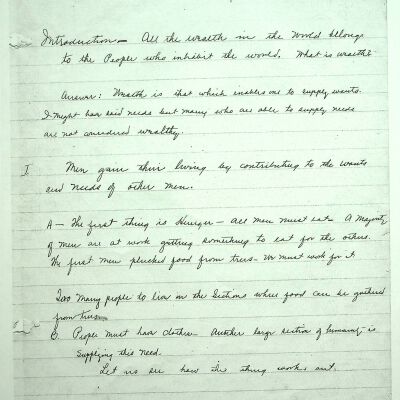 Introduction — All the wealth in the World belongs
to the People who inhibit the world. What is wealth?
Answer: Wealth is that which enables one to supply wants.
I might have said needs but many who are able to supply needs
are not considered wealthy.
I Men gain their living by contributing to the wants
and needs of other men.
A — The first thing is Hunger — All men must eat — A Majority
of men are at work getting something to eat for the others.
The first men plucked food from trees — We must work for it
Too many people to live in the Sections where food can be gathered
from trees
B. People must have clothes — Another large section of humanity is
supplying this need.
Let us see how the thing works out.